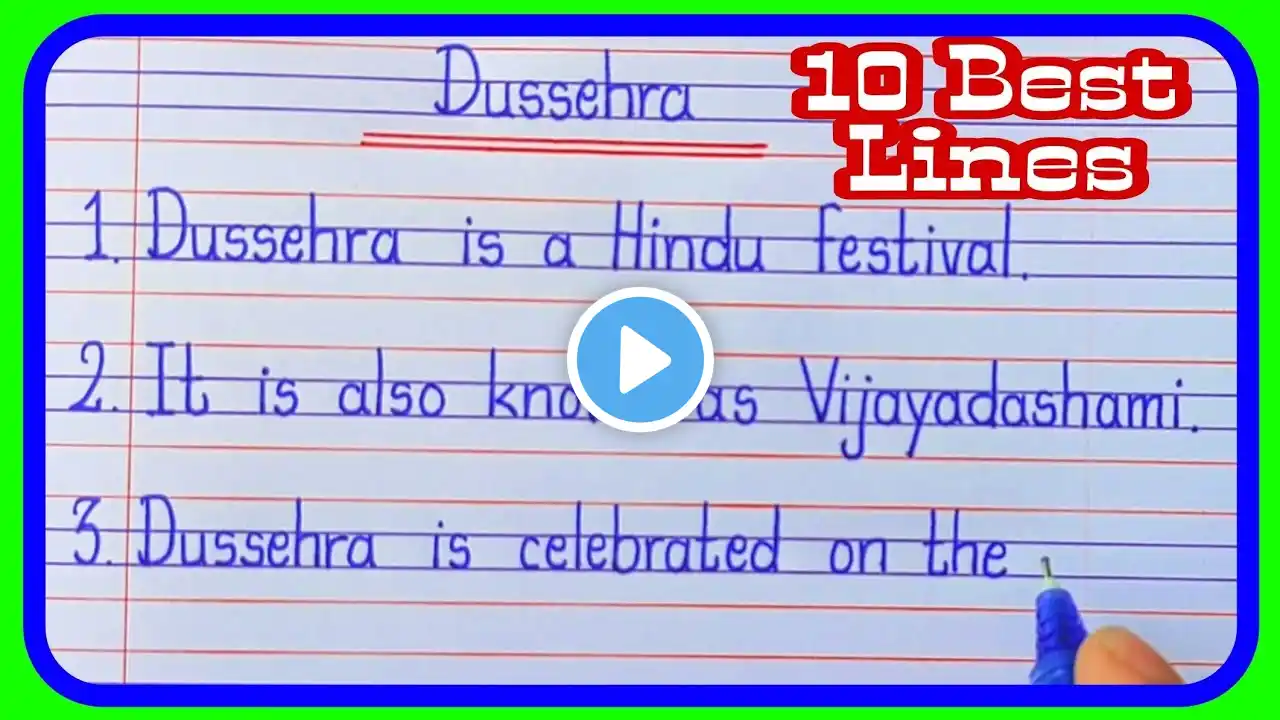 Dussehra
10 Best
Lines
1. Dussehra is a Hindu festival.
2. It is also as Vijayadashami.
3. Dussehra is celebrated on the